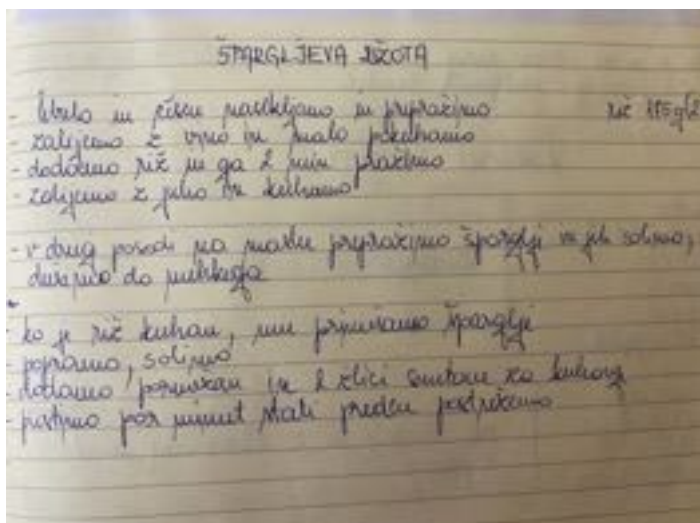 ŠPARGLJEVA RIŽOTA
- čebulo in česen nasekljamo in prepražimo
- zalijemo z vino in malo pokuhamo
- dodamo riž in ga 2 min pražimo
- zalijemo z juho in kuhamo
- v drugi posodi na maslu prepražimo šparglje in jih solimo,
do mehkega
- ko je riž kuhan, mu primešamo šparglje
- popramo, solimo
- dodamo parmezan in 2 žlici smetane za kuhanje
- pustimo par minut stati preden postrežemo